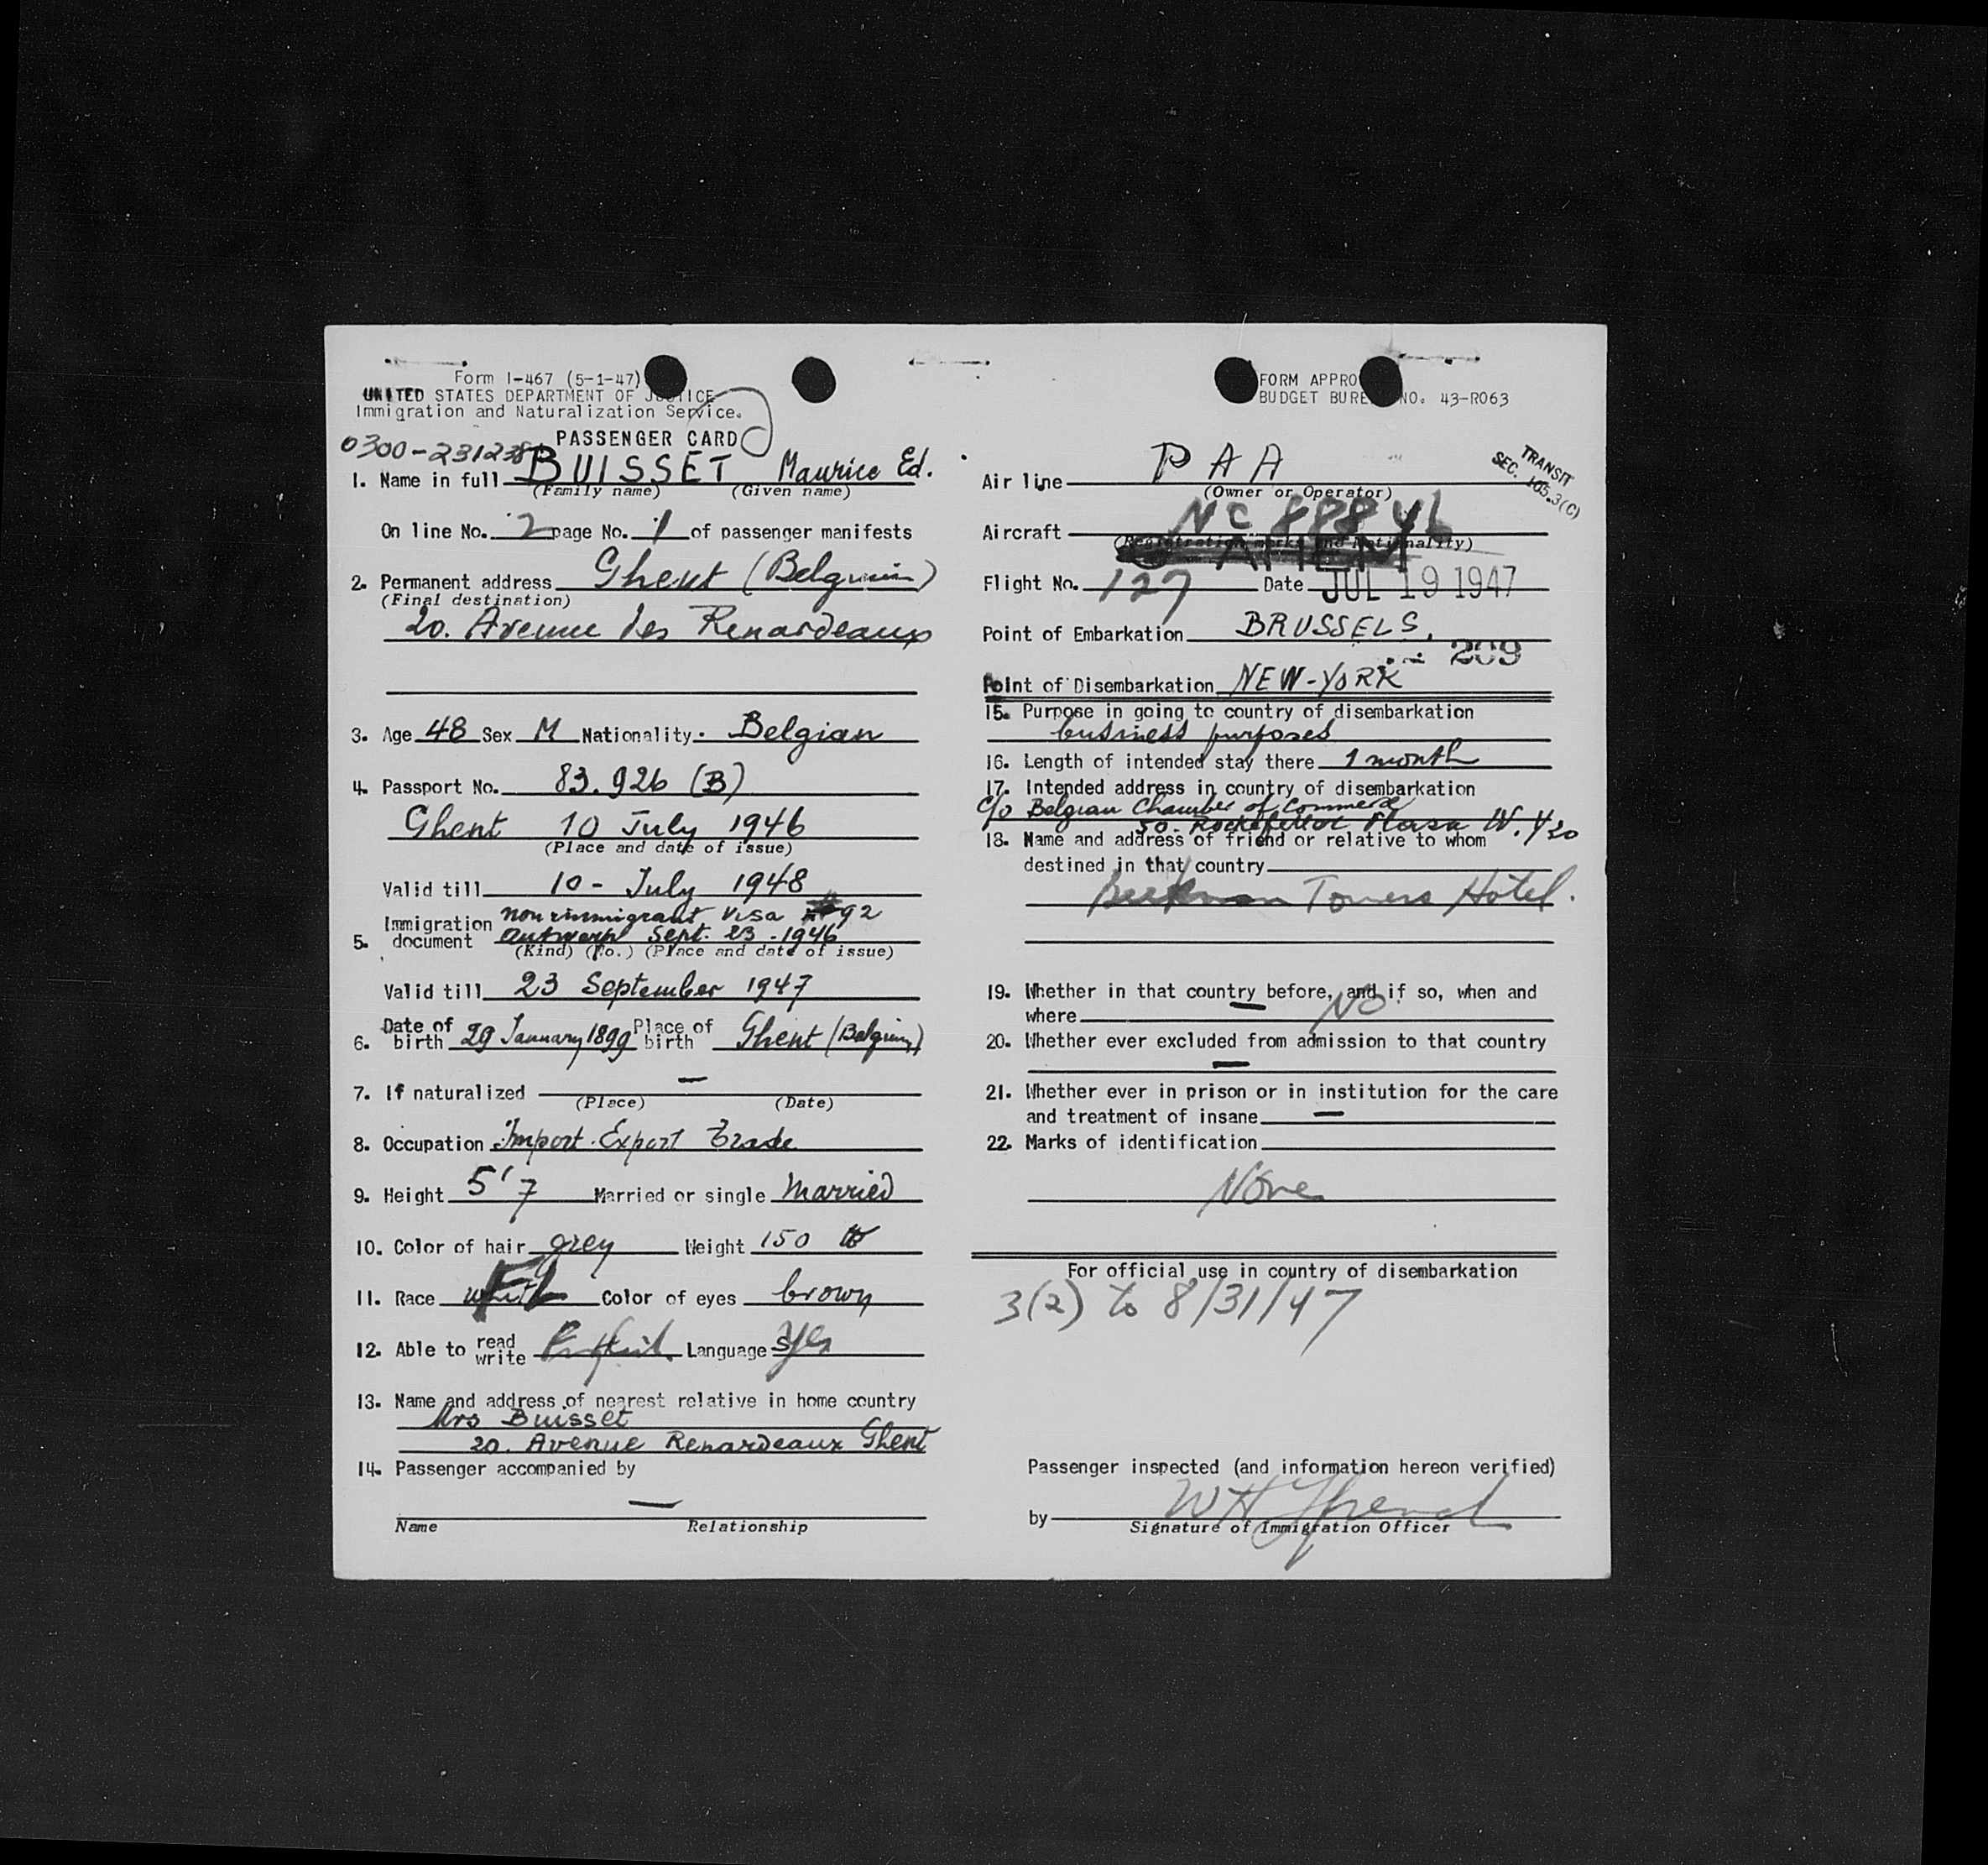 Form I-467 (5-1-47)
UNITED STATES DEPARTMENT OF JUSTICE
Immigration and Naturalization Service.
PASSENGER CARD
0300-231238
1. Name in full BUISSET Maurice Ed.
(Family name) (Given name)
On line No. 2 page No. 1 of passenger manifests
2. Permanent address Ghent (Belgium)
(Final destination)
20. Avenue des Renardeaux
3. Age 48 Sex M Nationality. Belgian
4. Passport No. 83.926 (B)
Ghent 10 July 1946
(Place and date of issue)
Valid till 10 - July 1948
5. Immigration document non immigrant visa 92
Antwerp Sept. 23 - 1946
(Kind) (No.) (Place and date of issue)
Valid till 23 September 1947
6. Date of birth 29 January 1899 Place of birth Ghent (Belgium)
7. If naturalized —
(Place) (Date)
8. Occupation Import. Export Trade
9. Height 5'7 Married or single Married
10. Color of hair grey Weight 150 lb
11. Race Color of eyes brown
12. Able to read write Language yes
13. Name and address of nearest relative in home country
Mrs Buisset
20. Avenue Renardeaux Ghent
14. Passenger accompanied by
—
Name Relationship
FORM APPRO
BUDGET BURE NO. 43-R063
TRANSIT
SEC. 105.3(C)
Air line PAA
(Owner or Operator)
Aircraft NC 88846
(Registration marks and Nationality)
Flight No. 127 Date JUL 19 1947
Point of Embarkation BRUSSELS.
209
Point of Disembarkation NEW-YORK
15. Purpose in going to country of disembarkation
business purposes
16. Length of intended stay there 1 month
17. Intended address in country of disembarkation
c/o Belgian Chamber of Commerce
50. Rockefeller Plaza N.Y 20
18. Name and address of friend or relative to whom
destined in that country
Beekman Towers Hotel.
19. Whether in that country before, and if so, when and
where NO
20. Whether ever excluded from admission to that country
—
21. Whether ever in prison or in institution for the care
and treatment of insane —
22. Marks of identification
None
For official use in country of disembarkation
3(2) to 8/31/47
Passenger inspected (and information hereon verified)
by
Signature of Immigration Officer